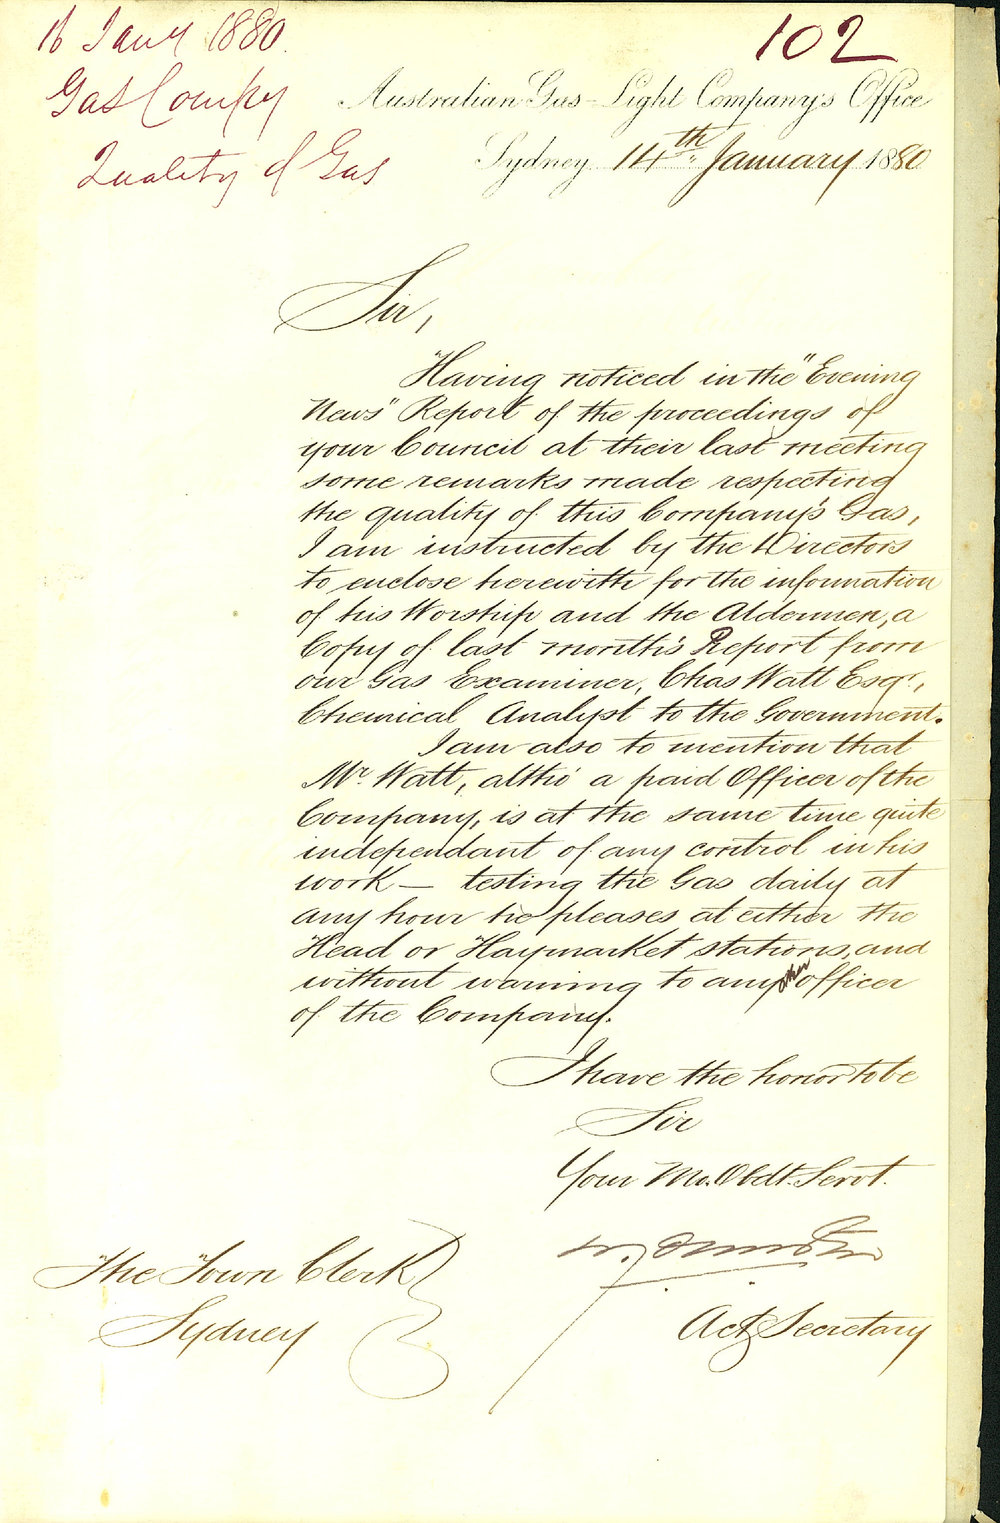 16 Jany 1880.
102
Gas Compy
Quality of Gas
Australian Gas-Light Company's Office
Sydney 14th January 1880
Sir,
Having noticed in the "Evening
News" Report of the proceedings of
your Council at their last meeting
some remarks made respecting
the quality of this Company's Gas,
I am instructed by the Directors
to enclose herewith for the information
of his Worship and the Aldermen, a
Copy of last month's Report from
our Gas Examiner, Chas Watt Esqr.,
Chemical Analyst to the Government.
I am also to mention that
Mr Watt, altho' a paid Officer of the
Company, is at the same time quite
independant of any control in his
work — testing the Gas daily at
any hour he pleases at either the
Head or Haymarket stations, and
without warning to any other officer
of the Company.
I have the honor to be
Sir
Your Mo. Obdt. Servt.
The Town Clerk
Sydney
Actg Secretary